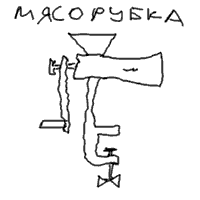 МЯСОРУБКА